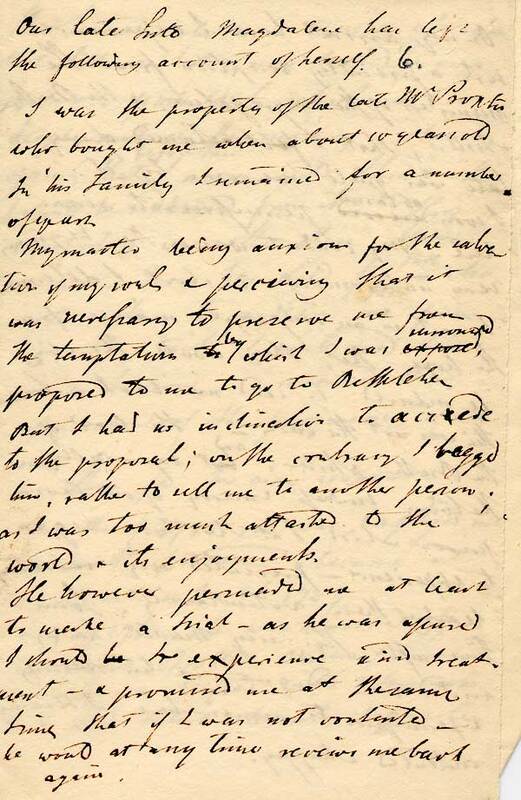 Our late Sister Magdalene has left
the following account of herself. 6.
I was the property of the late Mr
who bought me when about 10 years old
In his Family I remained for a number
of years
My master being anxious for the salva
tion of my soul & perceiving that it
was necessary to preserve me from
the temptations to by which I was exposed surrounded,
proposed to me to go to Bethlehem
But I had no inclination to accede
to the proposal; on the contrary I begged
him, rather to sell me to another person;
as I was too much attached to the
world & its enjoyments.
He however persuaded me at least
to make a trial – as he was assured
I should be to experience kind treat-
ment – & promised me at the same
time that if I was not contented –
he would at any time receive me back
again.